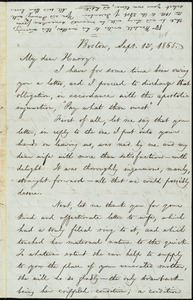 Boston, Sept. 12, 1865.
My dear Harry:
I have for some time been owing
you a letter, and I proceed to discharge that
obligation, in accordance with the apostolic
injunction, "Pay what thou owest."
First of all, let me say that your
letter, in reply to the one I put into your
hands on leaving us, was read by me and my
dear wife with more than satisfaction—with
delight. It was thoroughly ingenuous, manly,
straight-forward—all that we could possibly
desire.
Next, let me thank you for your
kind and affectionate letter to wife, which
had a truly filial ring to it, and which
touched her maternal nature to the quick.
To whatever extent she can help to supply
to you the place of your ascended mother,
she will do so gladly—the only drawback
being her crippled condition; a condition